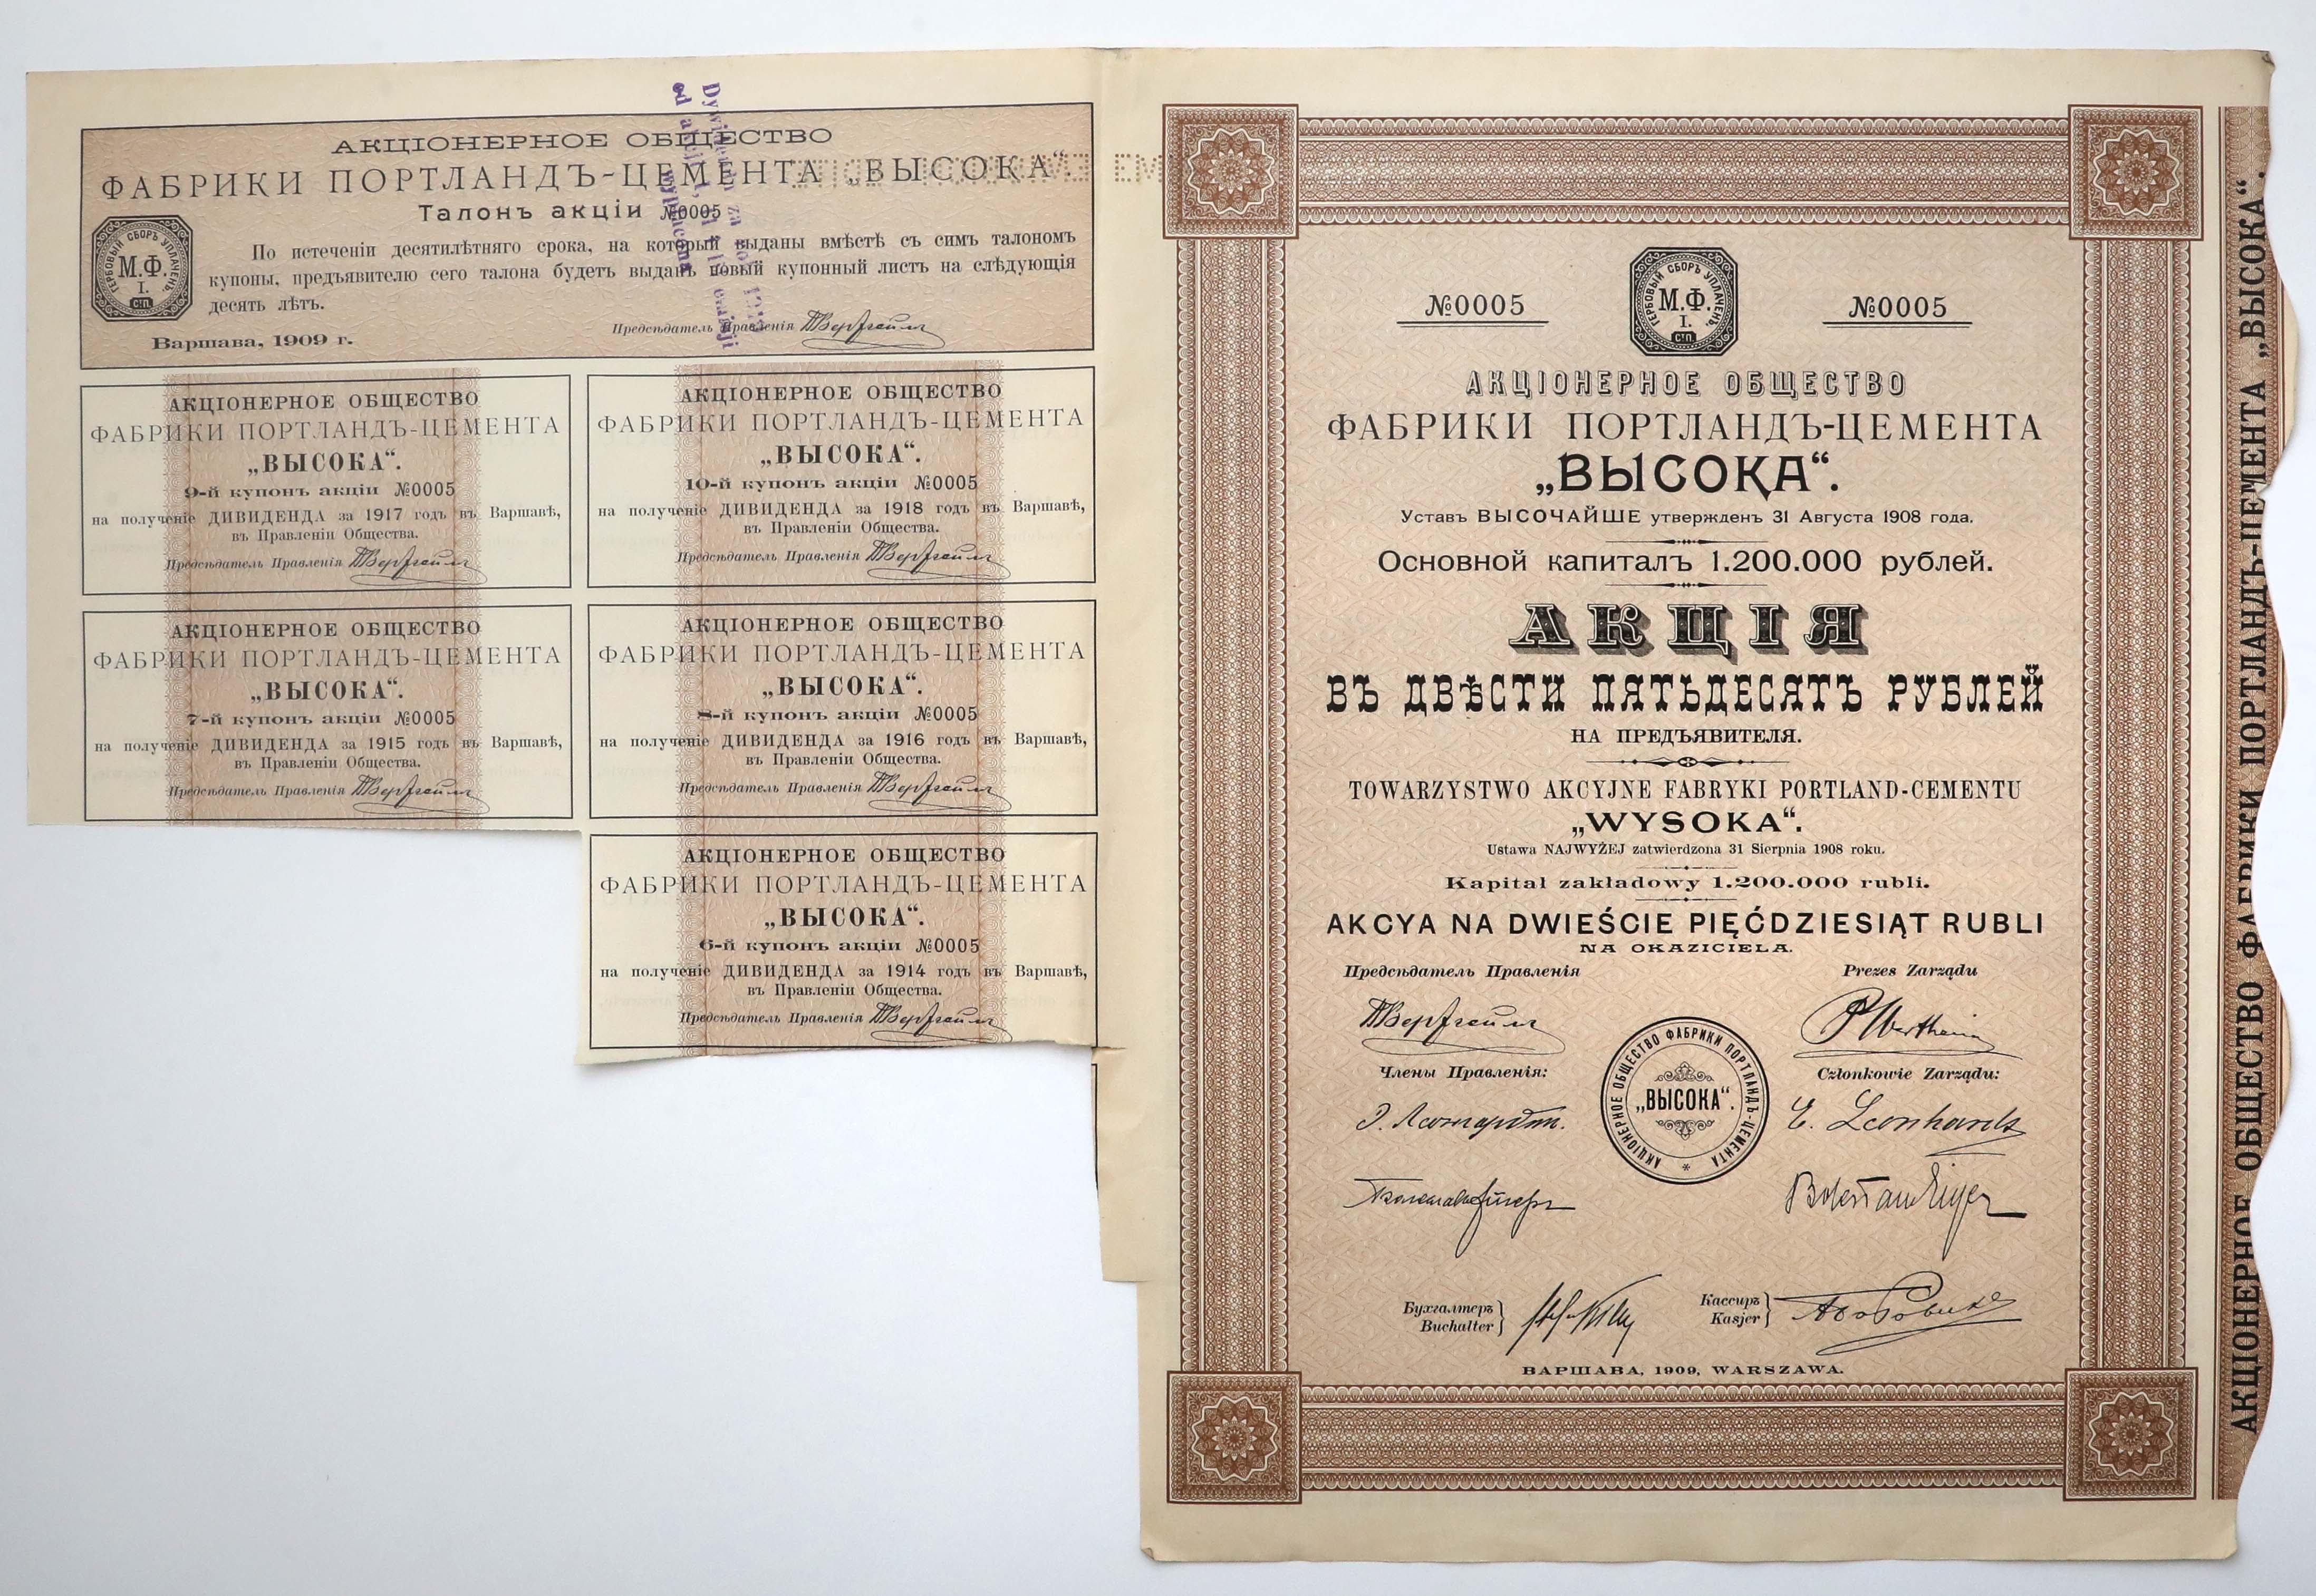 АКЦІОНЕРНОЕ ОБЩЕСТВО
ФАБРИКИ ПОРТЛАНДЪ-ЦЕМЕНТА „ВЫСОКА“.
Талонъ акціи №0005
ГЕРБОВЫЙ СБОРЪ УПЛАЧЕНЪ.
М.Ф.
I.
С.П.
По истеченіи десятилѣтняго срока, на который выданы вмѣстѣ съ симъ талономъ
купоны, предъявителю сего талона будетъ выданъ новый купонный листъ на слѣдующія
десять лѣтъ.
Варшава, 1909 г.
Предсѣдатель Правленія
АКЦІОНЕРНОЕ ОБЩЕСТВО
ФАБРИКИ ПОРТЛАНДЪ-ЦЕМЕНТА
„ВЫСОКА“.
9-й купонъ акціи №0005
на полученіе ДИВИДЕНДА за 1917 годъ въ Варшавѣ,
въ Правленіи Общества.
Предсѣдатель Правленія
АКЦІОНЕРНОЕ ОБЩЕСТВО
ФАБРИКИ ПОРТЛАНДЪ-ЦЕМЕНТА
„ВЫСОКА“.
10-й купонъ акціи №0005
на полученіе ДИВИДЕНДА за 1918 годъ въ Варшавѣ,
въ Правленіи Общества.
Предсѣдатель Правленія
АКЦІОНЕРНОЕ ОБЩЕСТВО
ФАБРИКИ ПОРТЛАНДЪ-ЦЕМЕНТА
„ВЫСОКА“.
7-й купонъ акціи №0005
на полученіе ДИВИДЕНДА за 1915 годъ въ Варшавѣ,
въ Правленіи Общества.
Предсѣдатель Правленія
АКЦІОНЕРНОЕ ОБЩЕСТВО
ФАБРИКИ ПОРТЛАНДЪ-ЦЕМЕНТА
„ВЫСОКА“.
8-й купонъ акціи №0005
на полученіе ДИВИДЕНДА за 1916 годъ въ Варшавѣ,
въ Правленіи Общества.
Предсѣдатель Правленія
АКЦІОНЕРНОЕ ОБЩЕСТВО
ФАБРИКИ ПОРТЛАНДЪ-ЦЕМЕНТА
„ВЫСОКА“.
6-й купонъ акціи №0005
на полученіе ДИВИДЕНДА за 1914 годъ въ Варшавѣ,
въ Правленіи Общества.
Предсѣдатель Правленія
№0005
ГЕРБОВЫЙ СБОРЪ УПЛАЧЕНЪ.
М.Ф.
I.
С.П.
№0005
АКЦІОНЕРНОЕ ОБЩЕСТВО
ФАБРИКИ ПОРТЛАНДЪ-ЦЕМЕНТА
„ВЫСОКА“.
Уставъ ВЫСОЧАЙШЕ утвержденъ 31 Августа 1908 года.
Основной капиталъ 1.200.000 рублей.
АКЦІЯ
ВЪ ДВѢСТИ ПЯТЬДЕСЯТЪ РУБЛЕЙ
НА ПРЕДЪЯВИТЕЛЯ.
TOWARZYSTWO AKCYJNE FABRYKI PORTLAND-CEMENTU
„WYSOKA“.
Ustawa NAJWYŻEJ zatwierdzona 31 Sierpnia 1908 roku.
Kapitał zakładowy 1.200.000 rubli.
AKCYA NA DWIEŚCIE PIĘĆDZIESIĄT RUBLI
NA OKAZICIELA.
Предсѣдатель Правленія
Prezes Zarządu
P Wertheim
Члены Правленія:
Członkowie Zarządu:
E. Leonhardt
АКЦІОНЕРНОЕ ОБЩЕСТВО ФАБРИКИ ПОРТЛАНДЪ-ЦЕМЕНТА
„ВЫСОКА“.
Bolesław Eiger
Бухгалтеръ
Buchalter
Кассиръ
Kasjer
ВАРШАВА, 1909, WARSZAWA.
АКЦІОНЕРНОЕ ОБЩЕСТВО ФАБРИКИ ПОРТЛАНДЪ-ЦЕМЕНТА „ВЫСОКА“.